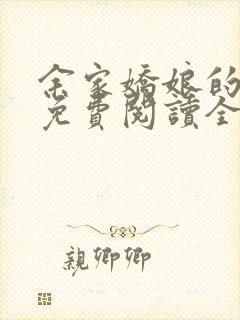 余家嬌娘的
免費閱讀全
親卿卿